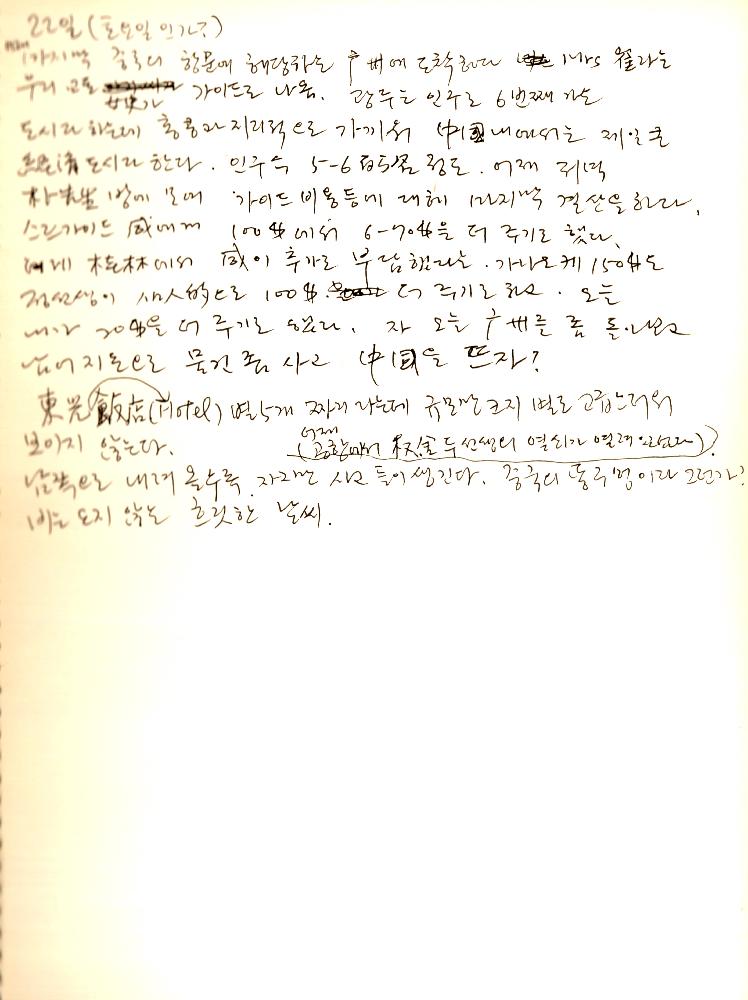 22일 (토요일인가?)
마지막 중국의 항문에 해당하는 广州에 도착하다 Mrs 翟라는
우리 교포 女史가 가이드로 나옴. 광주는 인구로 6번째 가는
도시라 하는데 홍콩과 지리적으로 가까워 中国내에서는 제일 큰
经濟도시라 한다. 인구수 5-6百万 정도. 어제 저녁
朴先生 방에 모여 가이드 비용등에 대해 마지막 결산을 하다.
스루가이드 咸에게 100$에서 6-70$을 더 주기로 했다.
어제 桂林에서 咸이 추가로 부담했다는 가라오케 150$도
정선생이 사인的으로 100$ 더 주기로 하고. 오늘
내가 20$을 더 주기로 했다. 자 오늘 广州를 좀 돌아보고
남어지돈으로 물건 좀 사고 中国을 뜨자?
東光飯店(Hotel) 별 5개 짜리라는데 규모만 크지 별로 고급스러워
보이지 않는다. (어제 공항에서 朴, 金 두 선생의 열쇠가 열려 있었다)
남쪽으로 내려 올수록 자그만 사고들이 생긴다. 중국의 항문이라 그런가?
비는 오지 않는 흐릿한 날씨.